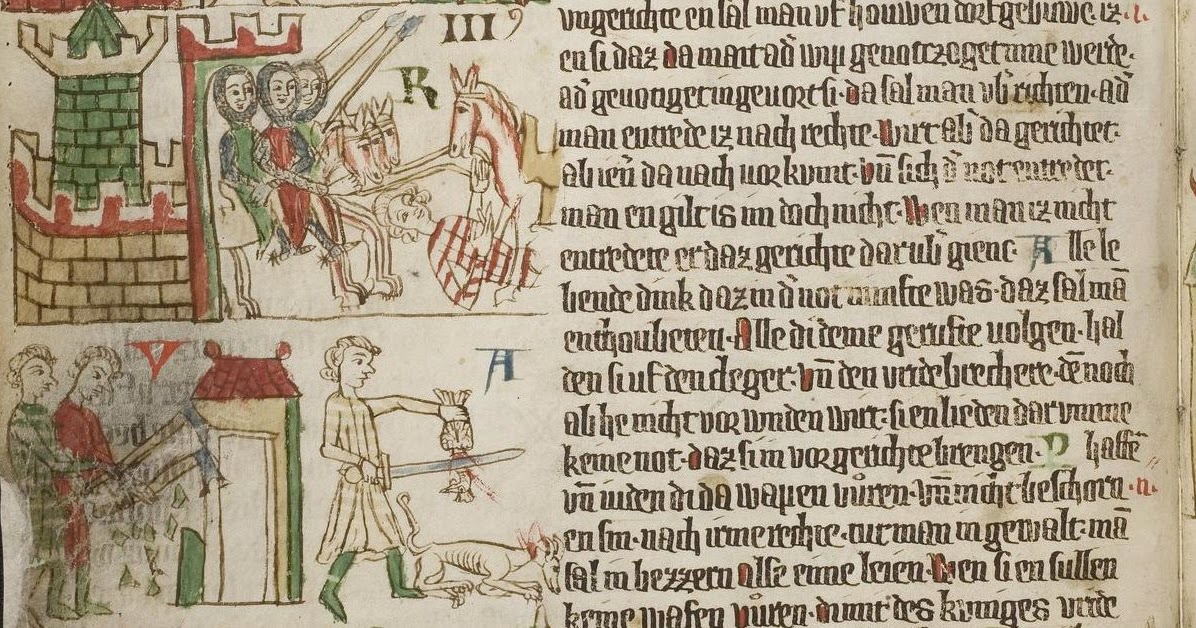 III⁹
R
V
A
vngerichte en sal man vf houwen dorfgebuwe. iz
en si daz da mait ad̓ wip genotzoget inne werde.
ad̓ genotzoget ingevort si. da sal man vb̓ richten. ad̓
man entrede iz nach rechte. wirt ab̓ da gerichtet.
ab ien̓ da nach vorkumt. vn̄ sich d̓ not entredet.
man en gilt is im doch nicht. Wen man iz nicht
entredete er daz gerichte darub̓ gienc. Alle le
bende dink daz in d̓ not numfte was. daz sal mā
enthoubeten. Alle di deme gerufte volgen. hal
den si uf den cleger. vn̄ den vridebrechere. dēnoch
ab he nicht vorwnden wirt. si en liden dar vmme
keine not. daz si in vor gerichte brengen. Phaffē
vn̄ iuden di da wapen vůren. vn̄ nicht beschorn
en sin. nach irme rechte. tut man in gewalt. mā
sal in bezzern alse eime leien. Wen si en sullen
keine wafen vůren. di mit des kuniges vride